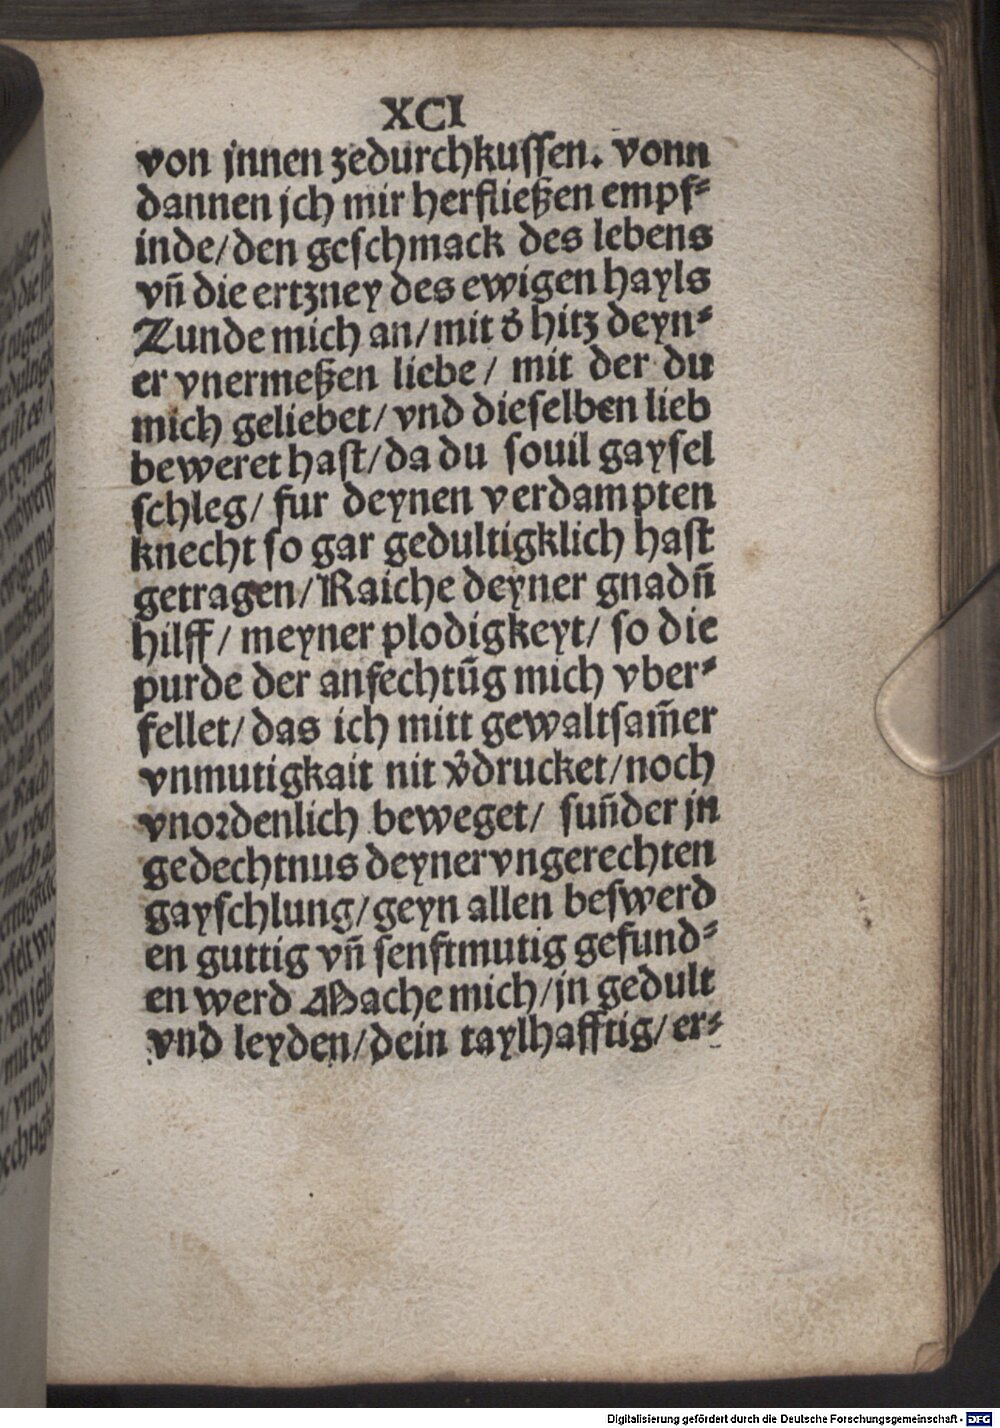 XCI
von jnnen zedurchkussen. vonn
dannen jch mir herfließen empf⸗
inde/den geschmack des lebens
vñ die ertzney des ewigen hayls
Zunde mich an/mit d̕ hitz deyn⸗
er vnermeßen liebe/ mit der du
mich geliebet/vnd dieselben lieb
beweret hast/da du souil gaysel
schleg/ fur deynen verdampten
knecht so gar gedultigklich hast
getragen/Raiche deyner gnadñ
hilff/ meyner plodigkeyt/ so die
purde der anfechtũg mich vber⸗
fellet/das ich mitt gewaltsam̃er
vnmutigkait nit v̕drucket/noch
vnordenlich beweget/ suñder jn
gedechtnus deyner vngerechten
gayschlung/geyn allen beswerd
en guttig vñ senftmutig gefund⸗
en werd Mache mich/jn gedult
vnd leyden/dein taylhafftig/er⸗
Digitalisierung gefördert durch die Deutsche Forschungsgemeinschaft - DFG